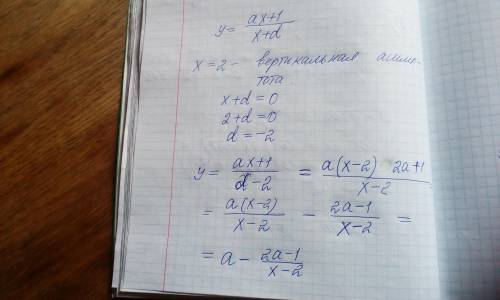 y = (ax+1)/(x+d)
x = 2 - вертикальная асимп-
тота
x+d = 0
2+d = 0
d = -2
y = (ax+1)/(x-2) = (a(x-2) 2a+1)/(x-2)
= (a(x-2))/(x-2) - (2a-1)/(x-2) =
= a - (2a-1)/(x-2)